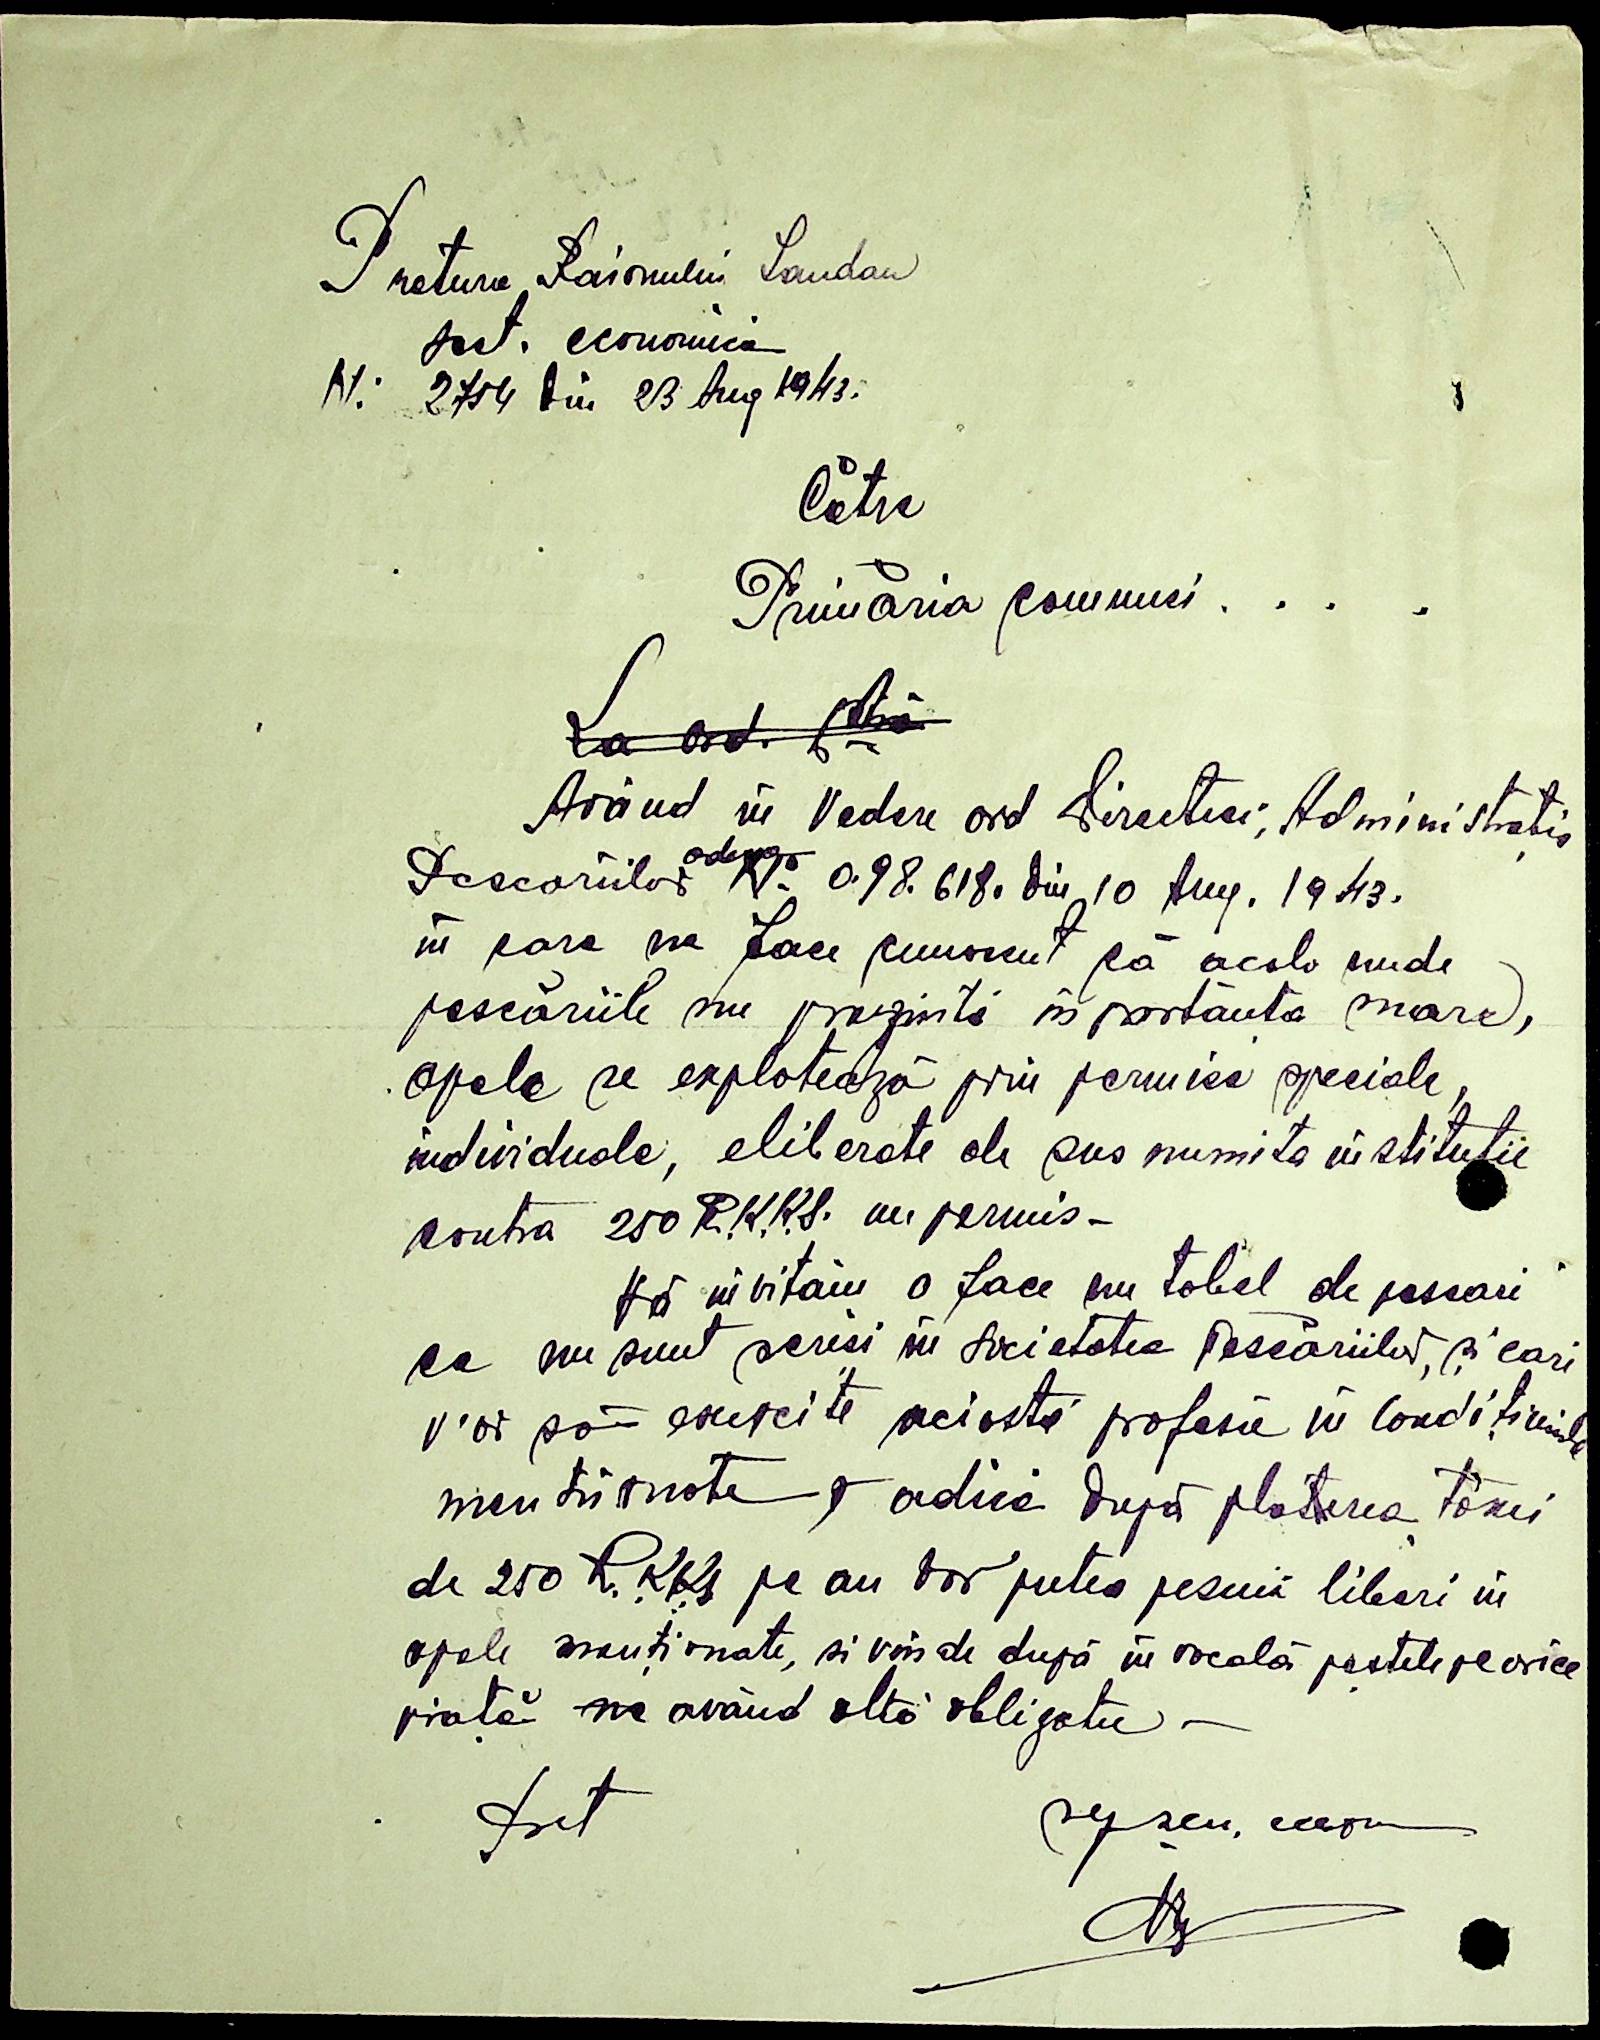 Pretura Raionului Landau
sect. economică
N: 2754 din 23 Aug 1943.
Către
Primăria comunei . . . .
La ord.
Având în vedere ord Direcției, Administrația
Pescăriilor No. 0.98.618. din 10 Aug. 1943.
în care ne face cunoscut că acolo unde
pescăriile nu prezintă importanta mare,
apele se explotează prin permise speciale,
individuale, eliberate de sus numita instituție
contra 250 R.K.K.S. un permis –
Vă invităm a face un tabel de pescari
ce nu sunt scriși în societatea Pescăriilor, și cari
v'or să exercite aciastă profesie în condițiunile
mentionate, adică după platirea taxei
de 250 R.K.K.S pe an vor putea pescui liberi în
apele menționate, si vinde după în voealá peștele pe orice
piață ne având altă obligatie –
Pret
 econ